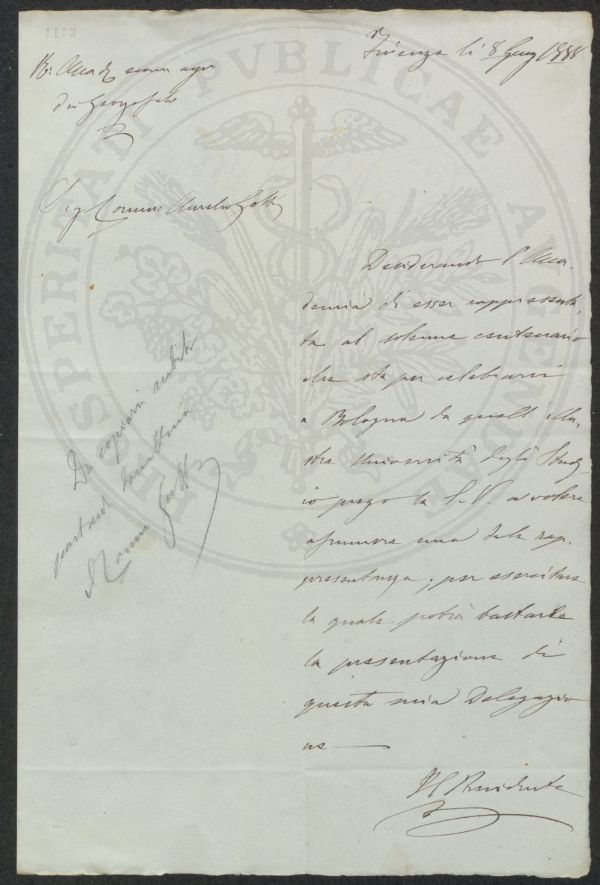 1133
Firenze li 8 Giug 1888
R. Accad. econ. agr.
dei Georgofili
Sig Comm. Aurelio Gotti
Desiderando l'Acca-
demia di esser rappresenta-
ta al solenne centenario
che sta per celebrarsi
a Bologna da quella illu-
stre Università degli Studj
io prego la S. V. a volere
assumere una tale rap-
presentanza, per esercitare
la quale potrà bastarle
la presentazione di
questa mia Delegazio
ne
Il Presidente
Da copiarsi subito
Comm Gotti
PROSPERITATI PVBLICAE AVGENDAE